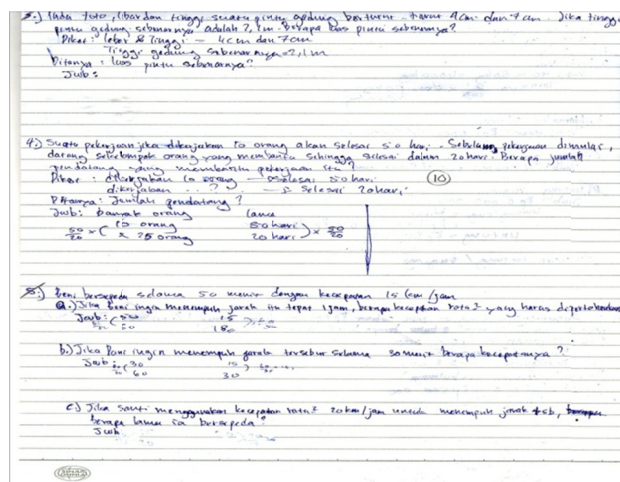 3.) Pada foto, lebar dan tinggi suatu pintu gedung berturut-turut 4 cm dan 7 cm. Jika tinggi
pintu gedung sebenarnya adalah 2,1m. Berapa luas pintu sebenarnya?
Diket: lebar & Tinggi = 4cm dan 7cm
Tinggi gedung sebenarnya = 2,1m
Ditanya: luas pintu sebenarnya?
Jwb:
4.) Suatu pekerjaan jika dikerjakan 10 orang akan selesai 50 hari. Sebelum pekerjaan dimulai,
datang sekelompok orang yang membantu sehingga selesai dalam 20 hari. Berapa jumlah
pendatang yang membantu pekerjaan itu?
Diket: dikerjakan 10 orang selesai 50 hari
dikerjakan ..?.. selesai 20 hari
10
Ditanya: Jumlah pendatang?
Jwb: banyak orang lama
50/20 × ( 10 orang 50 hari ) × 50/20
25 orang 20 hari
5.) Beni bersepeda selama 50 menit dengan kecepatan 15 km/jam
a.) Jika Beni ingin menempuh jarak itu tepat 1jam, berapa kecepatan rata² yang harus dipertahankan
Jwb: 50 15
60 18
b.) Jika Beni ingin menempuh jarak tersebut selama 30 menit berapa kecepatannya?
Jwb: 30 15
60 30
c) Jika santi menggunakan kecepatan rata² 20 km/jam untuk menempuh jarak tsb,
berapa lama ia bersepeda?
Jwb